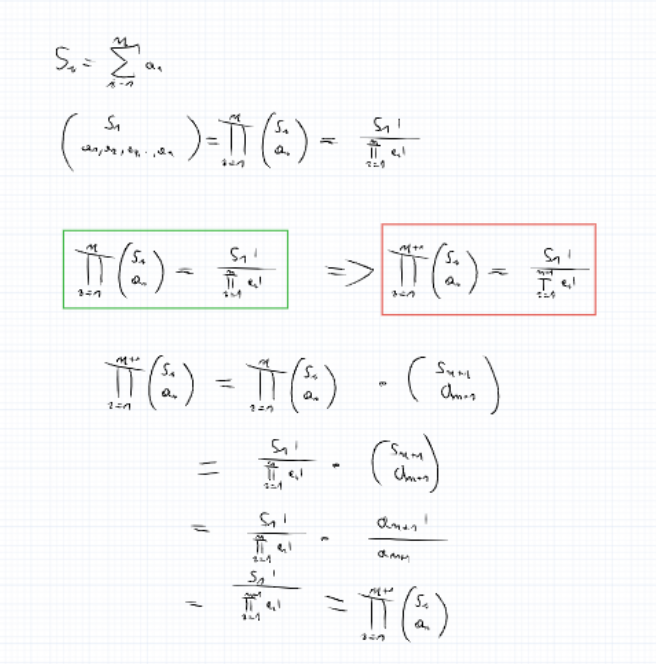 S_n = \sum_{i=1}^{n} a_n
\binom{S_n}{a_1, a_2, a_3, .., a_n} = \prod_{i=1}^{n} \binom{S_n}{a_n} = \frac{S_n!}{\prod_{i=1}^{n} a_i!}
\prod_{i=1}^{n} \binom{S_n}{a_n} = \frac{S_n!}{\prod_{i=1}^{n} a_i!} => \prod_{i=1}^{n+1} \binom{S_n}{a_n} = \frac{S_n!}{\prod_{i=1}^{n+1} a_i!}
\prod_{i=1}^{n+1} \binom{S_n}{a_n} = \prod_{i=1}^{n} \binom{S_n}{a_n} \cdot \binom{S_{n+1}}{a_{n+1}}
= \frac{S_n!}{\prod_{i=1}^{n} a_i!} \cdot \binom{S_{n+1}}{a_{n+1}}
= \frac{S_n!}{\prod_{i=1}^{n} a_i!} \cdot \frac{a_{n+1}!}{a_{n+1}}
= \frac{S_n!}{\prod_{i=1}^{n+1} a_i!} = \prod_{i=1}^{n+1} \binom{S_n}{a_n}